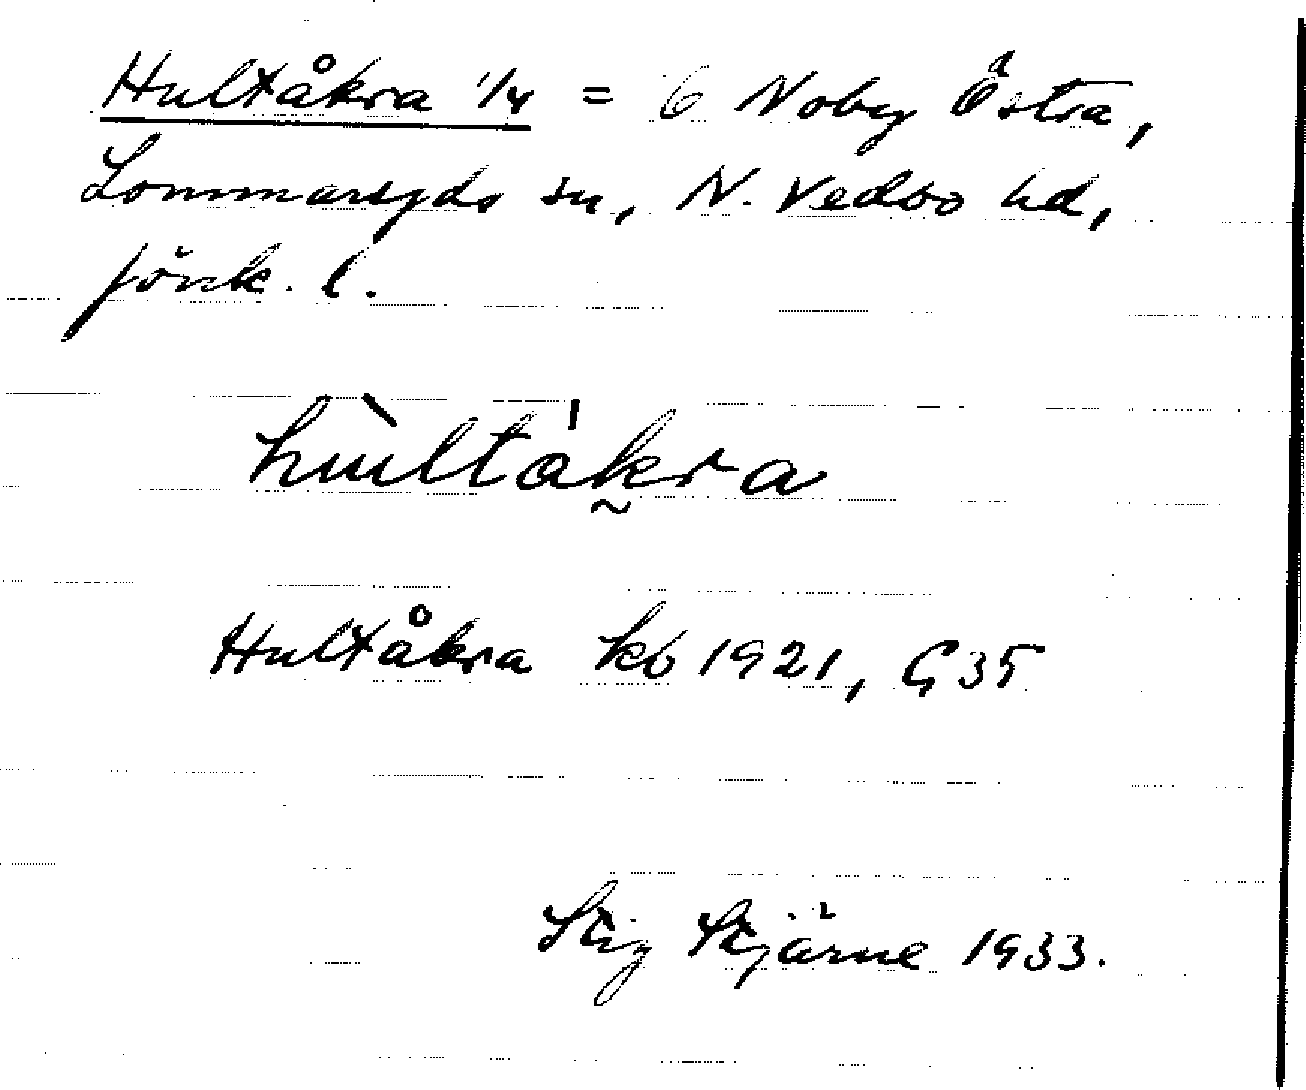 Hultåkra 1/4 = 6 Noby Östra,
Lommaryds sn, N. Vedbo hd,
Jönk. l.
hùltákra
Hultåkra kb 1921, G35
Stig Stjärne 1933.